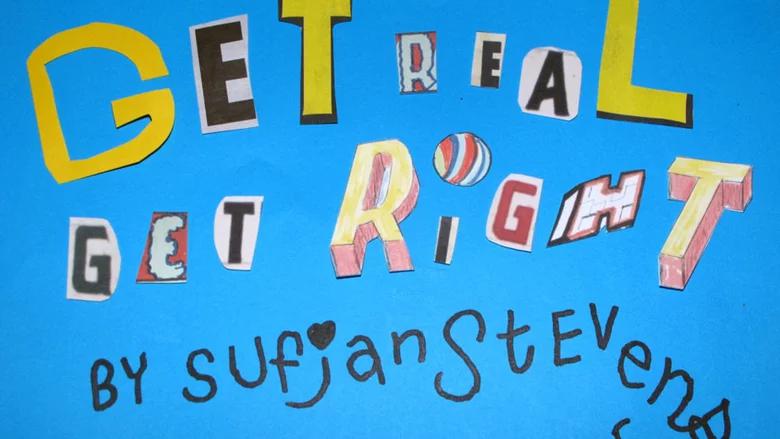 GET REAL
GET RiGHT
BY SUfjan StEVens